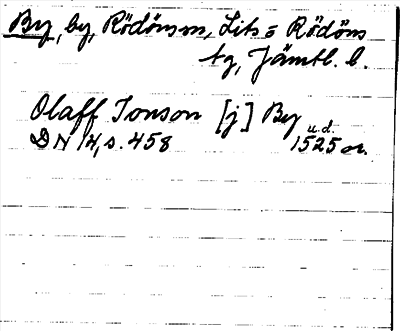 By, by, Rödöns sn, Lits o Rödöns
tg, Jämtl. l.
Olaff Jonson [j] By
u.d.
DN 14, s. 458 1525 or.